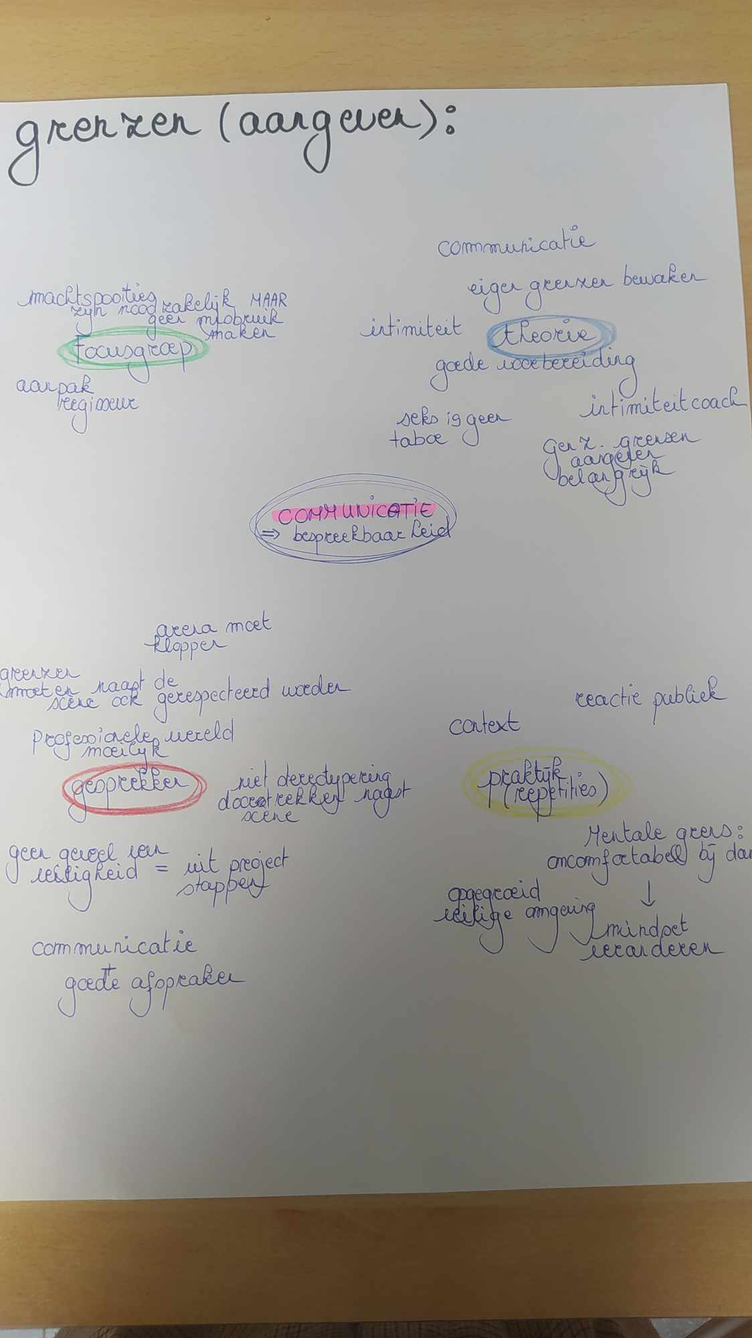 grenzen (aangeven):
communicatie
eigen grenzen bewaken
intimiteit
theorie
goede voorbereiding
intimiteitcoach
seks is geen
taboe
gen z. grenzen
aangeven
belangrijk
machtsposities
zijn noodzakelijk MAAR
geen misbruik
maken
Focusgroep
aanpak
regisseur
COMMUNICATIE
=> bespreekbaarheid
arena moet
kloppen
grenzen
moeten naast de
scène ook gerespecteerd worden
professionele wereld
moeilijk
gesprekken
niet stereotypering
doortrekken naast
scène
geen gevoel van
veiligheid = uit project
stappen
communicatie
goede afspraken
reactie publiek
context
praktijk
(repetities)
Mentale grens:
oncomfortabell bij
↓
opgegroeid
veilige omgeving
mindset
veranderen